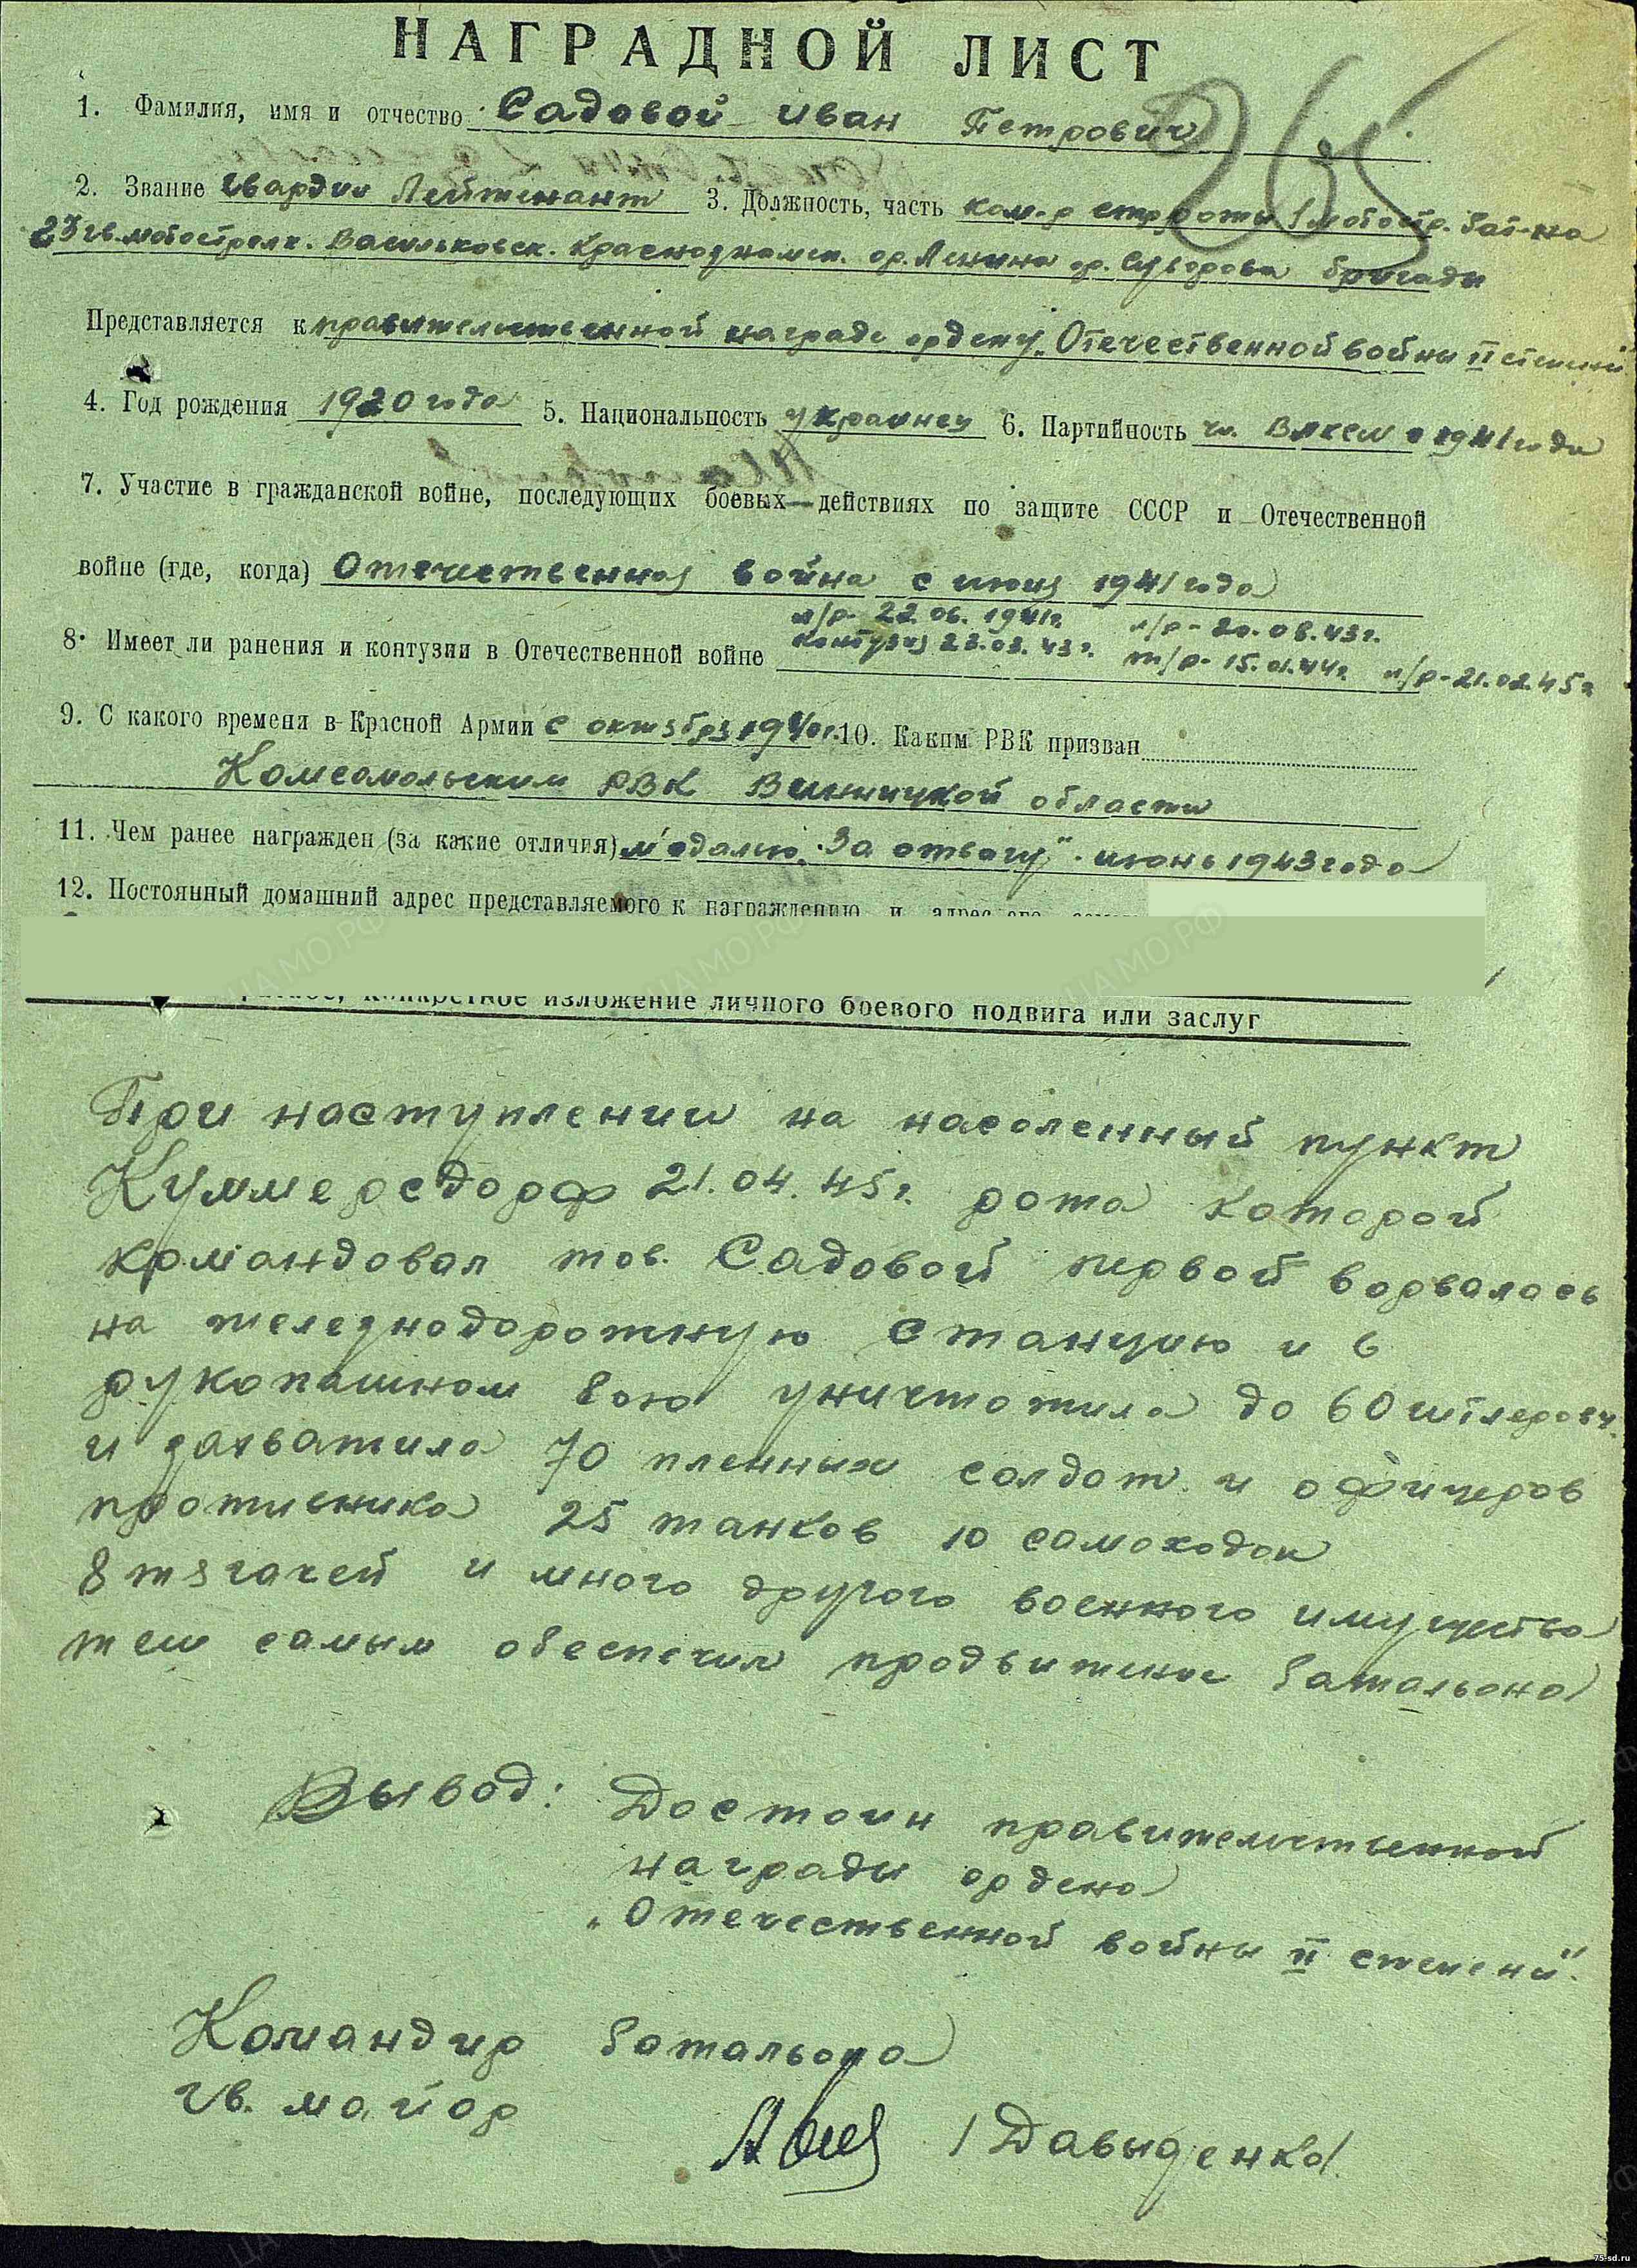 НАГРАДНОЙ ЛИСТ
265
1. Фамилия, имя и отчество Садовой Иван Петрович
2. Звание Гвардии Лейтенант 3. Должность, часть ком-р стр. роты 1 мотостр. бат-на
23 гв. мотострелк. Васильковск. Краснознамен. ор. Ленина ор. Суворова бригады
Представляется к правительственной награде ордену „Отечественной войны II степени"
4. Год рождения 1920 года 5. Национальность украинец 6. Партийность чл. ВЛКСМ с 1941 года
7. Участие в гражданской войне, последующих боевых действиях по защите СССР и Отечественной
войне (где, когда) Отечественная война с июня 1941 года
л/р- 22.06.1941г. л/р- 20.08.43г.
8. Имеет ли ранения и контузии в Отечественной войне контузия 23.03.43г. т/р- 15.01.44г. л/р-21.02.45г.
9. С какого времени в Красной Армии с октября 1940г. 10. Каким РВК призван
Комсомольским РВК Винницкой области
11. Чем ранее награжден (за какие отличия) медалью „За отвагу" июнь 1943 года
12. Постоянный домашний адрес представляемого к награждению и адрес его
конкретное изложение личного боевого подвига или заслуг
При наступлении на населенный пункт
Куммерсдорф 21.04.45г. рота которой
командовал тов. Садовой первой ворвалась
на железнодорожную станцию и в
рукопашном бою уничтожила до 60 гитлеровц.
и захватила 70 пленных солдат и офицеров
противника 25 танков 10 самоходок
8 тягачей и много другого военного имущества
тем самым обеспечил продвижение батальона
Вывод: Достоин правительственной
награды ордена
„Отечественной войны II степени".
Командир батальона
гв. майор
/Давыденко/.
ЦАМО.РФ
ЦАМО.РФ
ЦАМО.РФ
75-sd.ru